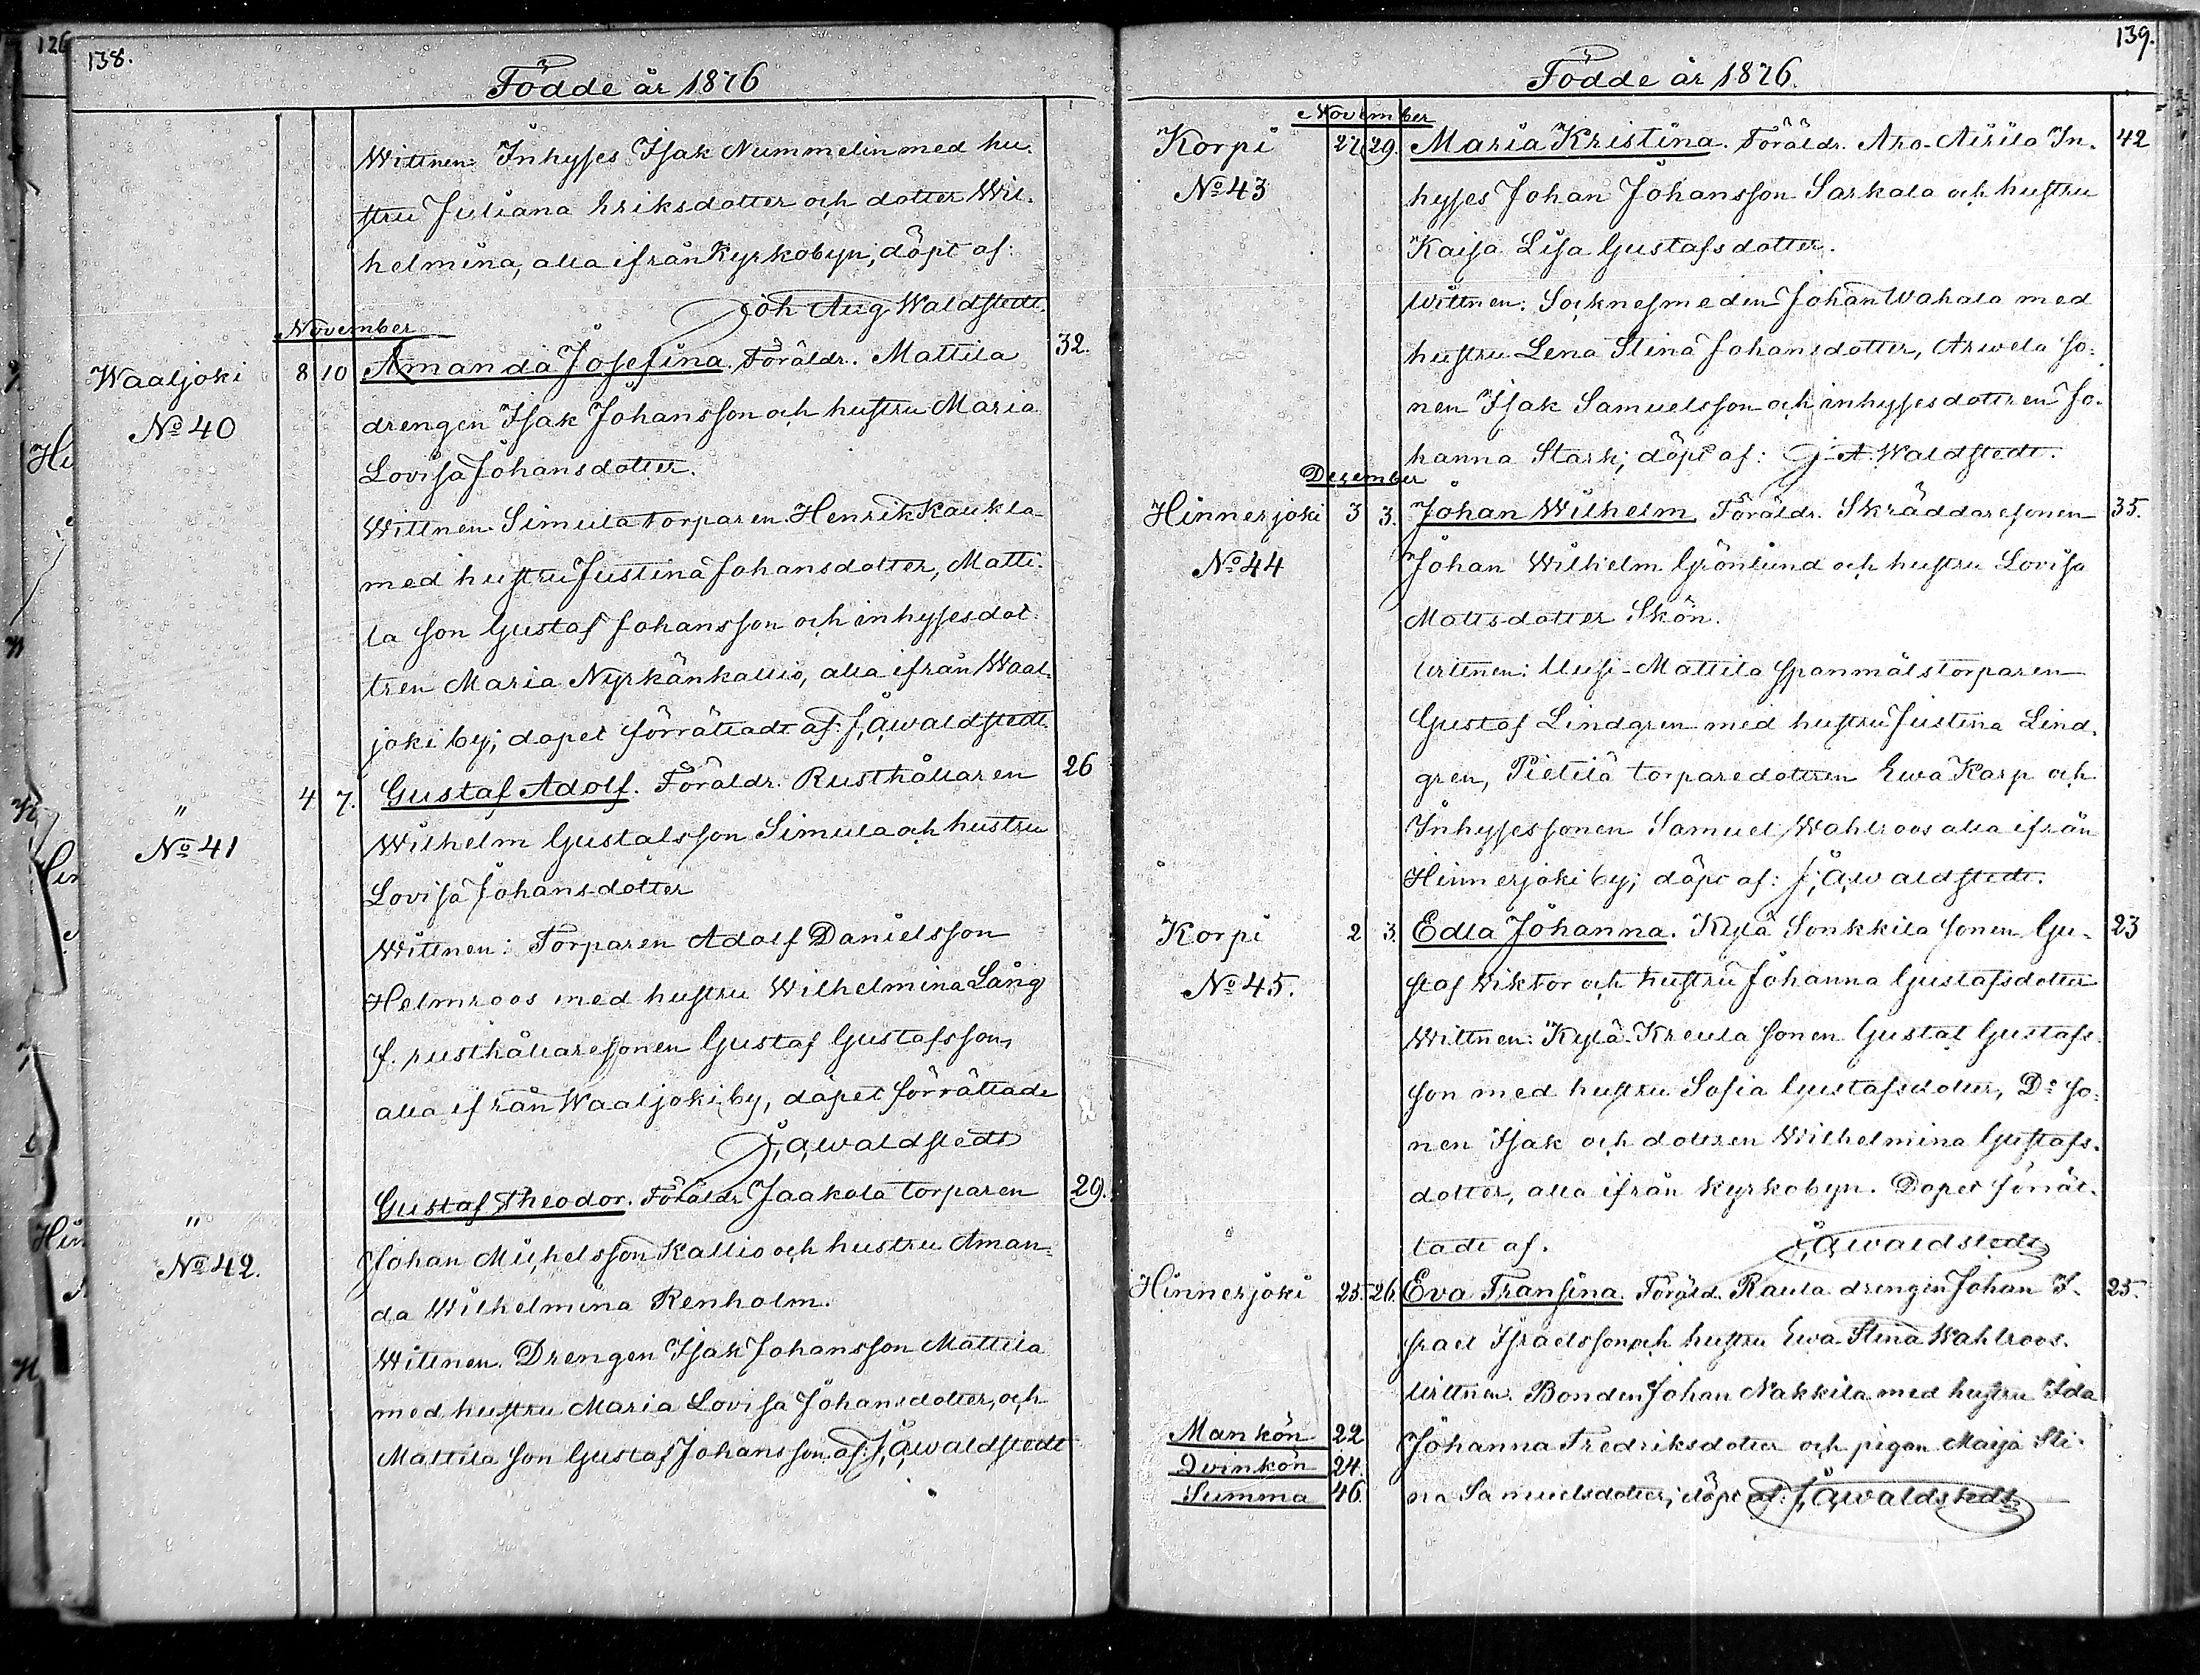 126
138.
Födde år 1876
Wittnen: Inhyses Isak Nummelin med hu-
stru Juliana Eriksdotter och dotter Wil-
helmina, alla ifrån Kyrkobyn; döpt af:
Joh Aug Waldstedt.
November
Waaljoki 8 10 Amanda Josefina. Föräldr. Mattila 32.
drengen Isak Johansson och hustru Maria
No 40
Lovisa Johansdotter.
Wittnen. Simula torparen Henrik Kaukla
med hustru Justina Johansdotter, Matti-
la son Gustaf Johansson och inhysesdot-
tren Maria Nyrkänkallio, alla ifrån Waal-
joki by; dopet förrättadt af: J. A. Waldstedt
" 4 7. Gustaf Adolf. Föräldr. Rusthållaren 26
No 41
Wilhelm Gustafsson Simula och hustru
Lovisa Johansdotter
Wittnen: Torparen Adolf Danielsson
Helmroos med hustru Wilhelmina Lång
f. rusthållaresonen Gustaf Gustafsson,
alla ifrån Waaljoki by, dopet förrättade
J. A. Waldstedt
" Gustaf Theodor. Föräldr. Jaakola torparen 29.
No 42.
Johan Michelsson Kallio och hustru Aman-
da Wilhelmina Renholm.
Wittnen. Drengen Isak Johansson Mattila
med hustru Maria Lovisa Johansdotter, och
Mattila son Gustaf Johansson. af: J. A. Waldstedt
139.
Födde år 1876.
November
Korpi 27 29. Maria Kristina. Föräldr. Aro-Airila In- 42
No 43
hyses Johan Johansson Sarkala och hustru
Kaisa Lisa Gustafsdotter.
Wittnen: Socknesmeden Johan Wahala med
hustru Lena Stina Johansdotter, Arwela so-
nen Isak Samuelsson och inhysesdottren Jo-
hanna Stark; döpt af: J. A. Waldstedt.
Dezember
Hinnerjoki 3 3. Johan Wilhelm. Föräldr. Skräddaresonen 35.
No 44
Johan Wilhelm Grönlund och hustru Lovisa
Mattsdotter Skön.
Wittnen: Uusi-Mattila spanmålstorparen
Gustaf Lindgren med hustru Justina Lind-
gren, Pietilä torparedottren Ewa Karp och
Inhysessonen Samuel Wahlroos alla ifrån
Hinnerjoki by; döpt af: J. A. Waldstedt.
Korpi 2 3. Edla Johanna. Kylä Sonkkila sonen Gu- 23
No 45.
staf Viktor och hustru Johanna Gustafsdotter
Wittnen: Kylä-Kreula sonen Gustaf Gustafs-
son med hustru Sofia Gustafsdotter, Do so-
nen Isak och dottren Wilhelmina Gustafs-
dotter, alla ifrån Kyrkobyn. Dopet förrät-
tadt af. J. A. Waldstedt
Hinnerjoki 25. 26. Eva Fransina. Föräld. Raula drengen Johan I- 25.
srael Israelsson och hustru Ewa Stina Wahlroos.
Wittnen. Bonden Johan Nakkila med hustru Ida
Johanna Fredriksdotter och pigan Maija Sti-
na Samuelsdotter; döpt af: J. A. Waldstedt
Mankön 22
Qvinkön 24.
Summa 46.